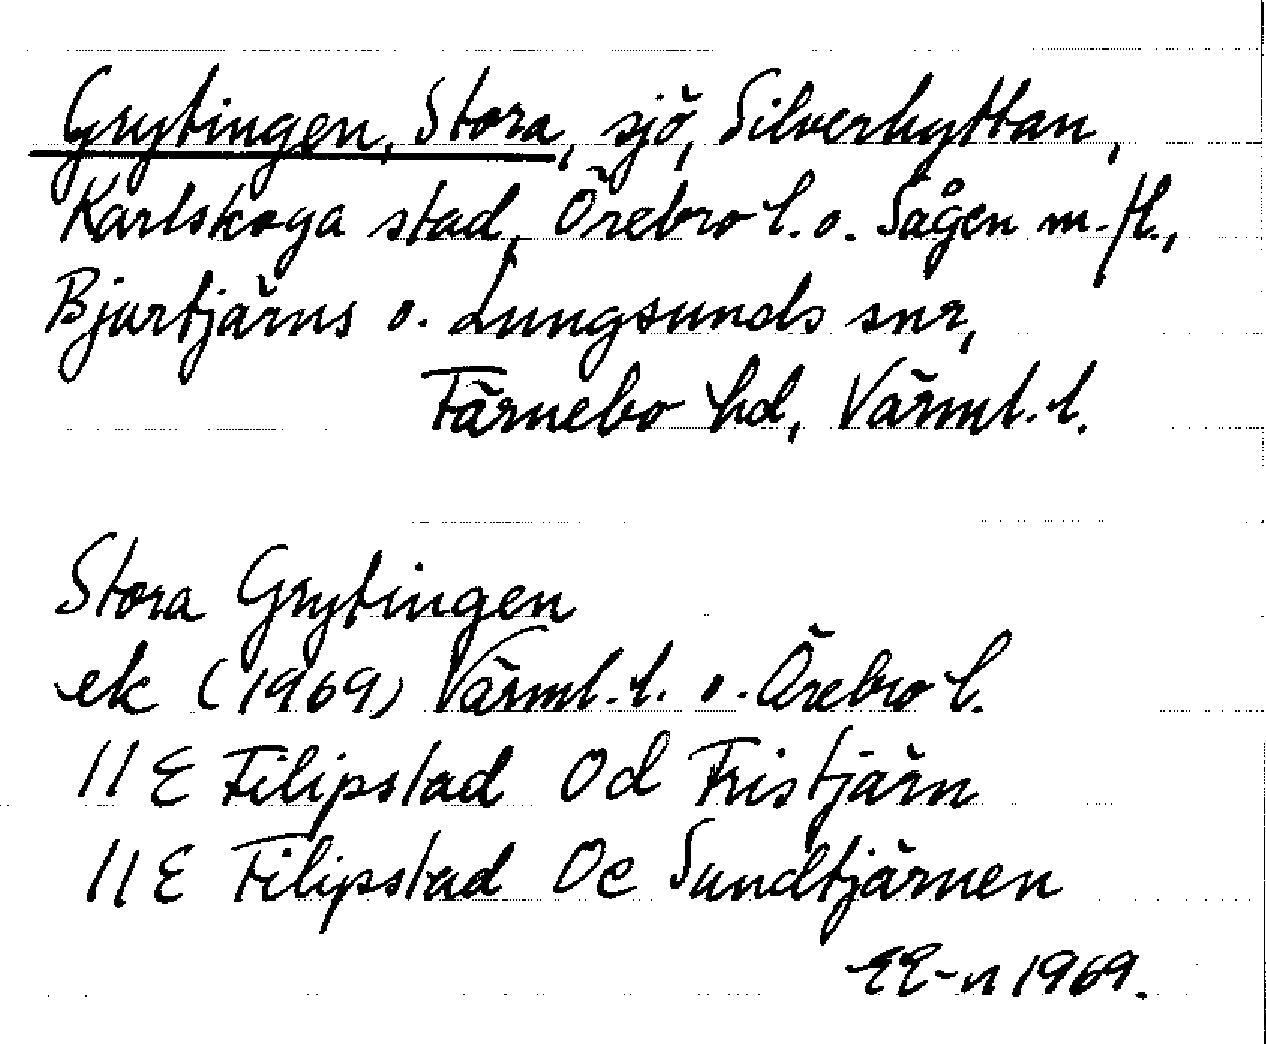 Grytingen, Stora, sjö, Silverhyttan,
Karlskoga stad, Örebro l. o. Sågen m. fl.,
Bjurtjärns o. Lungsunds snr,
Färnebo hd, Värml. l.
Stora Grytingen
ek (1969) Värml. l. o. Örebro l.
11 E Filipstad 0d Fristjärn
11 E Filipstad 0e Sundtjärnen
EE-n 1969.